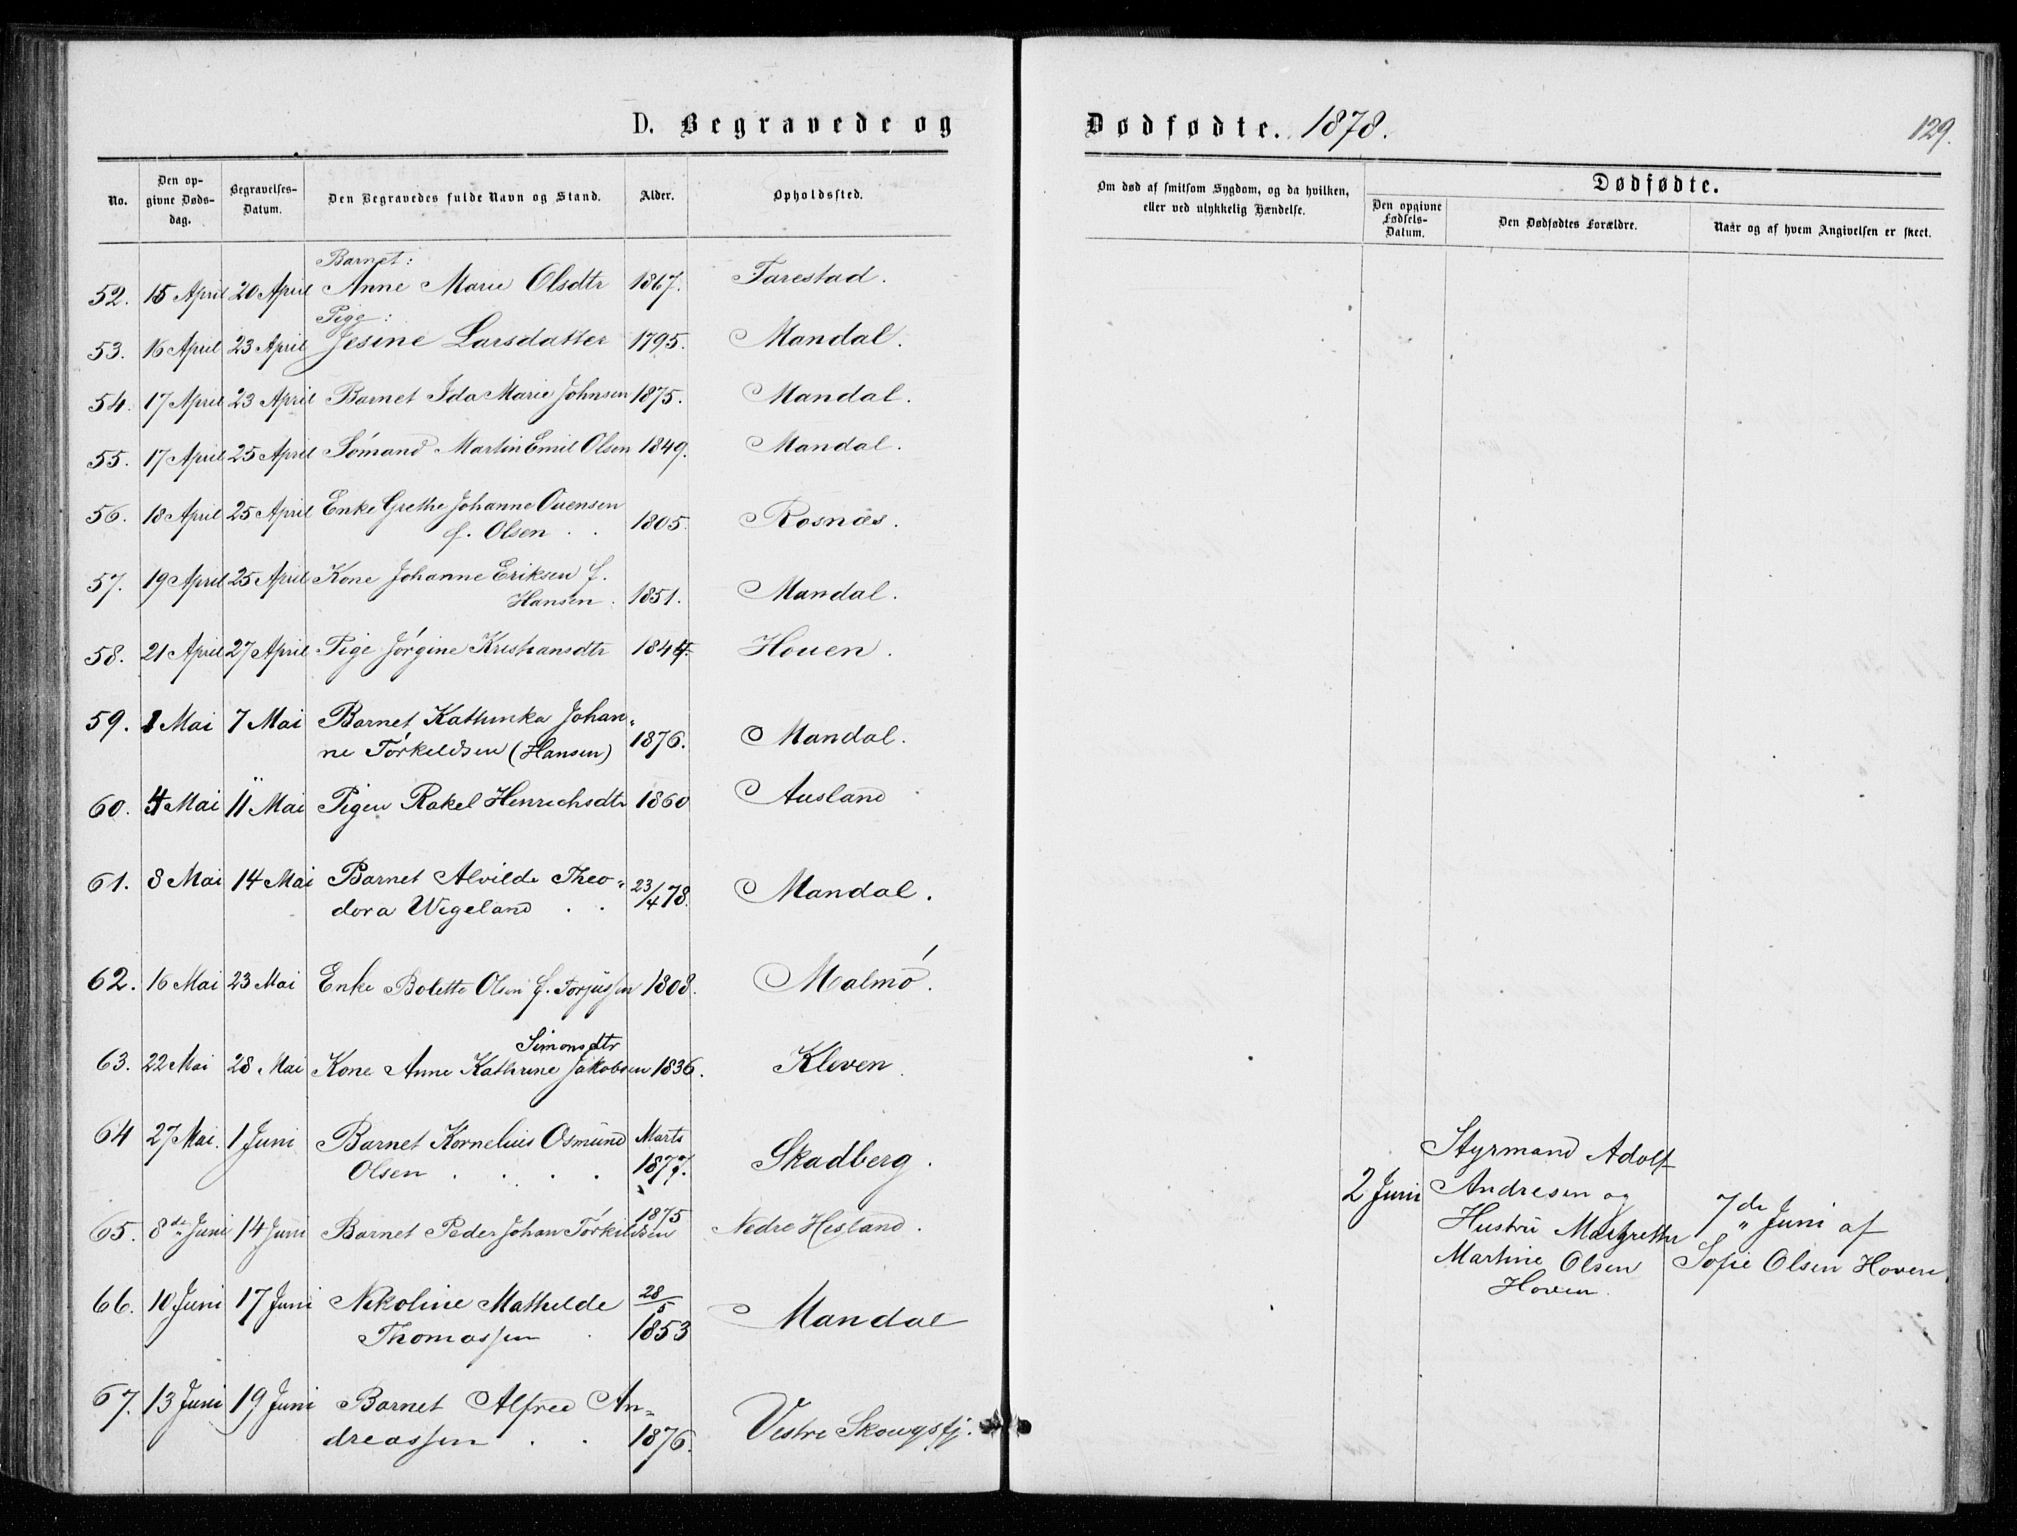 D. Begravede og Dødfødte. 1878. 129.
No. Den opgivne Dødsdag. Begravelses-Datum. Den Begravedes fulde Navn og Stand. Alder. Opholdssted. Om død af smitsom Sygdom, og da hvilken, eller ved ulykkelig Hændelse. Dødfødte. Den opgivne Fødsels-Datum. Den Dødfødtes Forældre. Naar og af hvem Angivelsen er skeet.
Barnet:
52. 15 April 20 April Anne Marie Olsdtr 1867. Tarestad.
Pige:
53. 16 April 23 April Jesine Larsdatter 1795. Mandal.
54. 17 April 23 April Barnet Ida Marie Johnsen 1875. Mandal.
55. 17 April 25 April Sømand Martin Emil Olsen 1849. Mandal.
56. 18 April 25 April Enke Grethe Johanne Ouensen
f. Olsen . . 1805. Rosnæs.
57. 19 April 25 April Kone Johanne Eriksen f.
Hansen. 1851. Mandal.
58. 21 April 27 April Pige Jørgine Kristiansdtr 1844. Houen.
59. 1 Mai 7 Mai Barnet Kathinka Johan-
ne Tørkeldsen (Hansen) 1876. Mandal.
60. 4 Mai 11 Mai Pigen Rakel Henrichsdtr 1860 Ausland
61. 8 Mai 14 Mai Barnet Alvilde Theo-
dora Wigeland . . 23/4 78. Mandal.
62. 16 Mai 23 Mai Enke Bolette Olsen f. Torjussen 1808. Malmø.
Simonsdtr
63. 22 Mai 28 Mai Kone Anne Kathrine Jakobsen 1836. Kleven.
64 27 Mai. 1 Juni Barnet Kornelius Osmund Marts
Olsen . . . . 1877. Skadberg.
65. 8de Juni 14 Juni Barnet Peder Johan Tørkildsen 1875 Nedre Hesland.
66. 10 Juni 17 Juni Nikoline Mathilde 28/5
Thomassen . 1853 Mandal
67. 13 Juni 19 Juni Barnet Alfred An-
dreassen . . 1876. Vestre Skougsfj.
2 Juni
Styrmand Adolf
Andresen og
Hustru Margrethe
Martine Olsen
Hoven.
7de Juni af
Sofie Olsen Hoven.